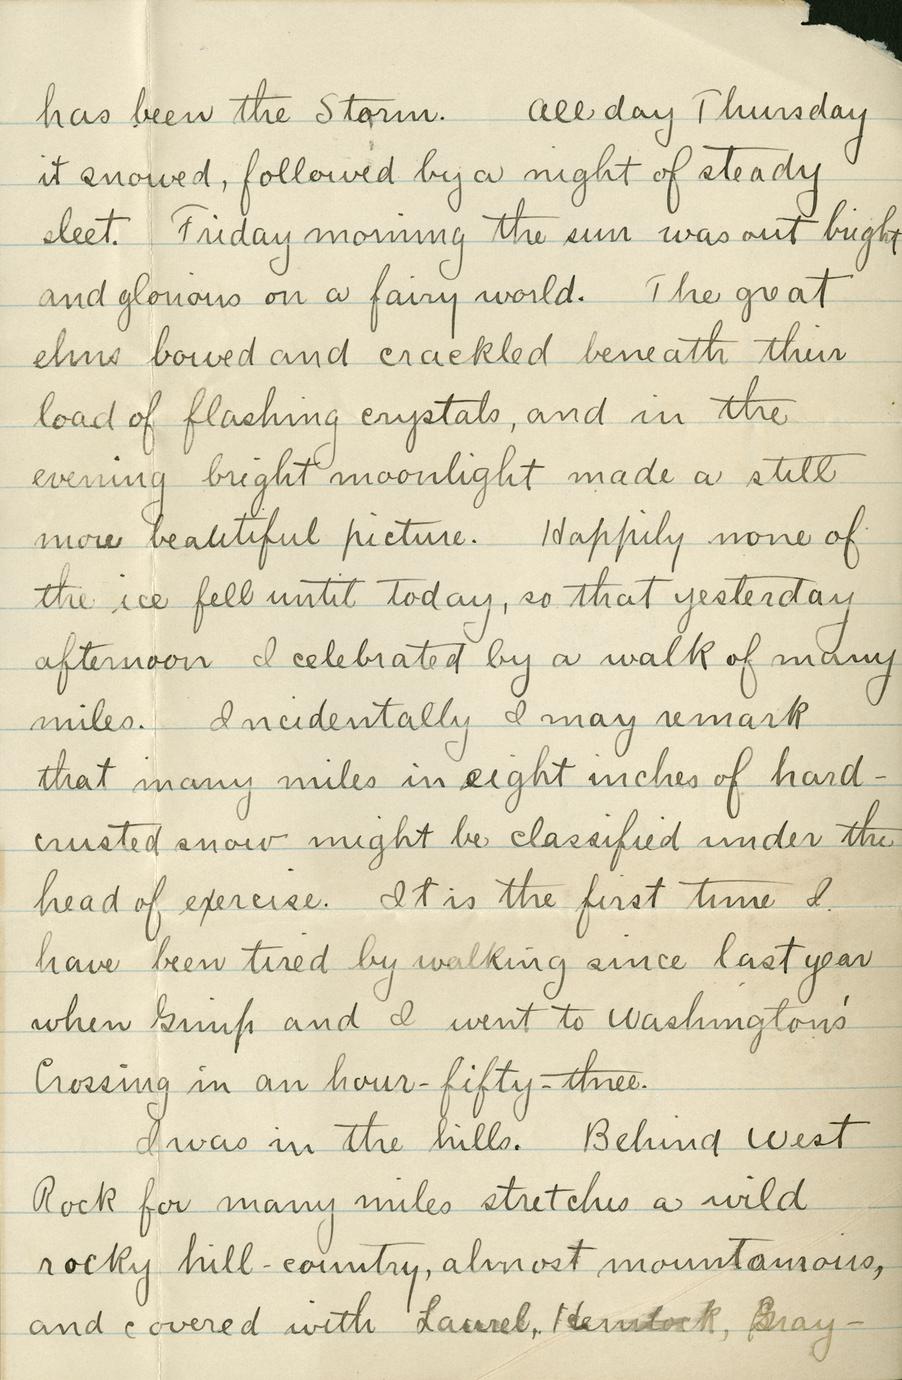 has been the Storm. All day Thursday
it snowed, followed by a night of steady
sleet. Friday morning the sun was out bright
and glorious on a fairy world. The great
elms bowed and crackled beneath their
load of flashing crystals, and in the
evening bright moonlight made a still
more beautiful picture. Happily none of
the ice fell until today, so that yesterday
afternoon I celebrated by a walk of many
miles. Incidentally I may remark
that many miles in eight inches of hard-
crusted snow might be classified under the
head of exercise. It is the first time I
have been tired by walking since last year
when Gimp and I went to Washington's
Crossing in an hour-fifty-three.
I was in the hills. Behind West
Rock for many miles stretches a wild
rocky hill-country, almost mountainous,
and covered with Laurel, Hemlock, Gray-